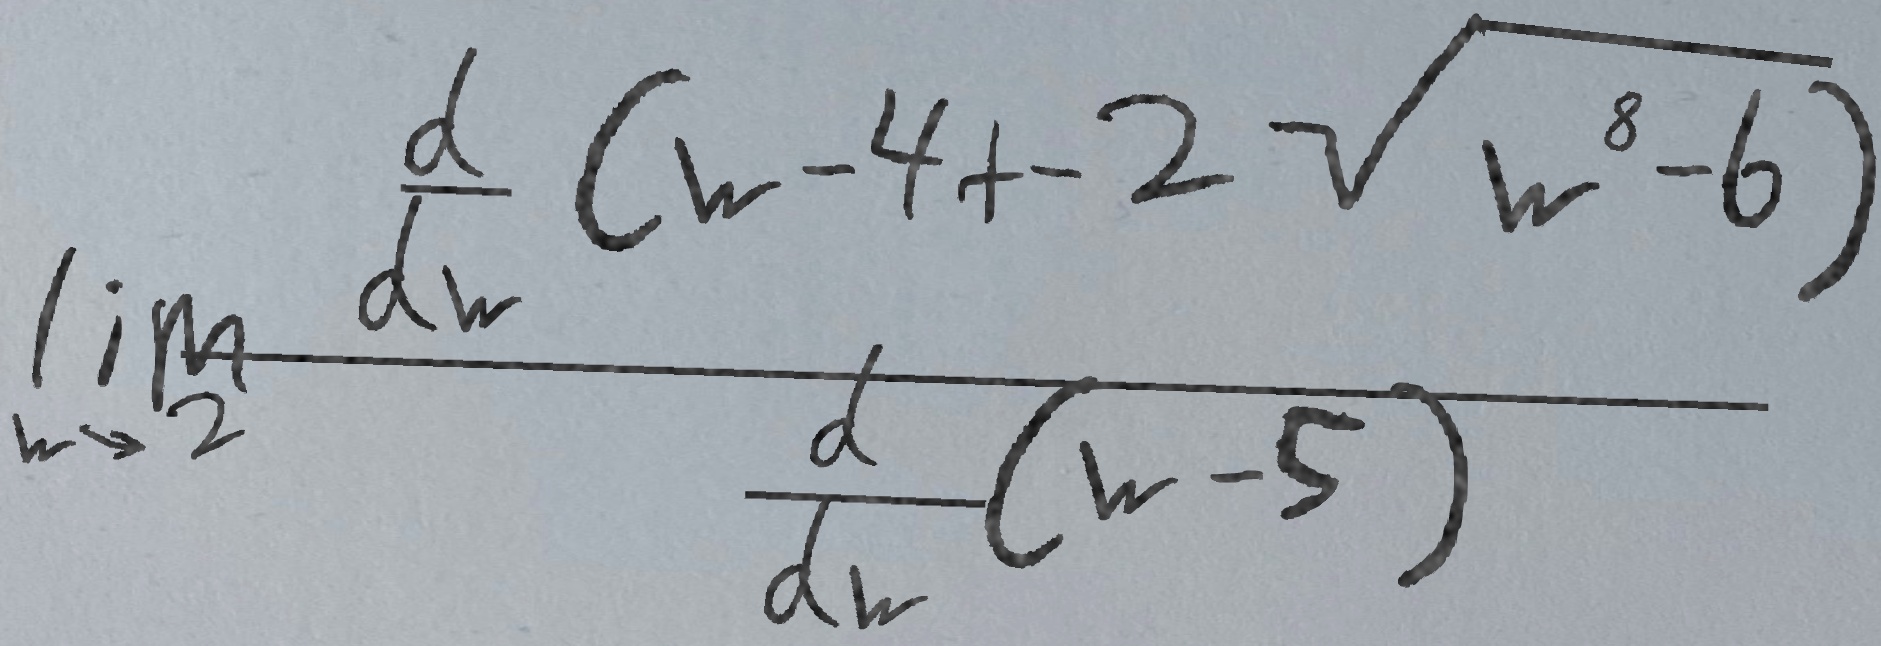 \lim_{w \to 2} \frac{\frac{d}{dw}(w-4+-2\sqrt{w^8-6})}{\frac{d}{dw}(w-5)}